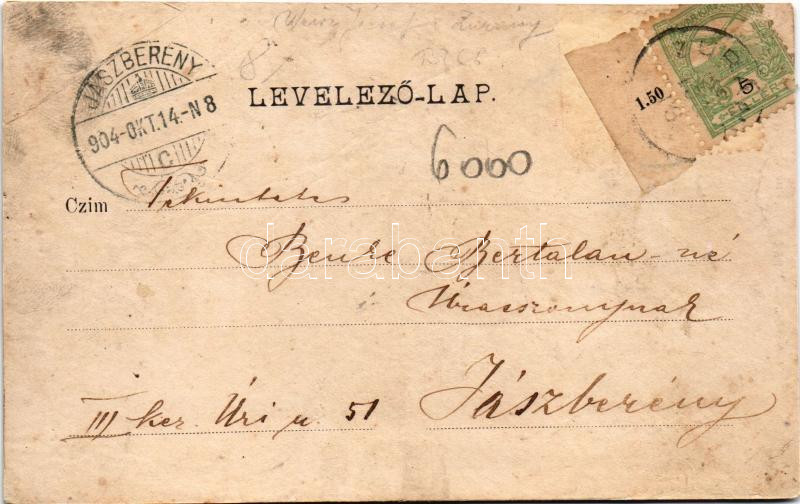 JÁSZBERÉNY
904-OKT.14.-N8
C
LEVELEZŐ-LAP.
1.50
6000
Czim Tekintetes
Benke Bertalan-né
Úrasszonynak
Jászberény
III ker. Úri u. 51
darabanth